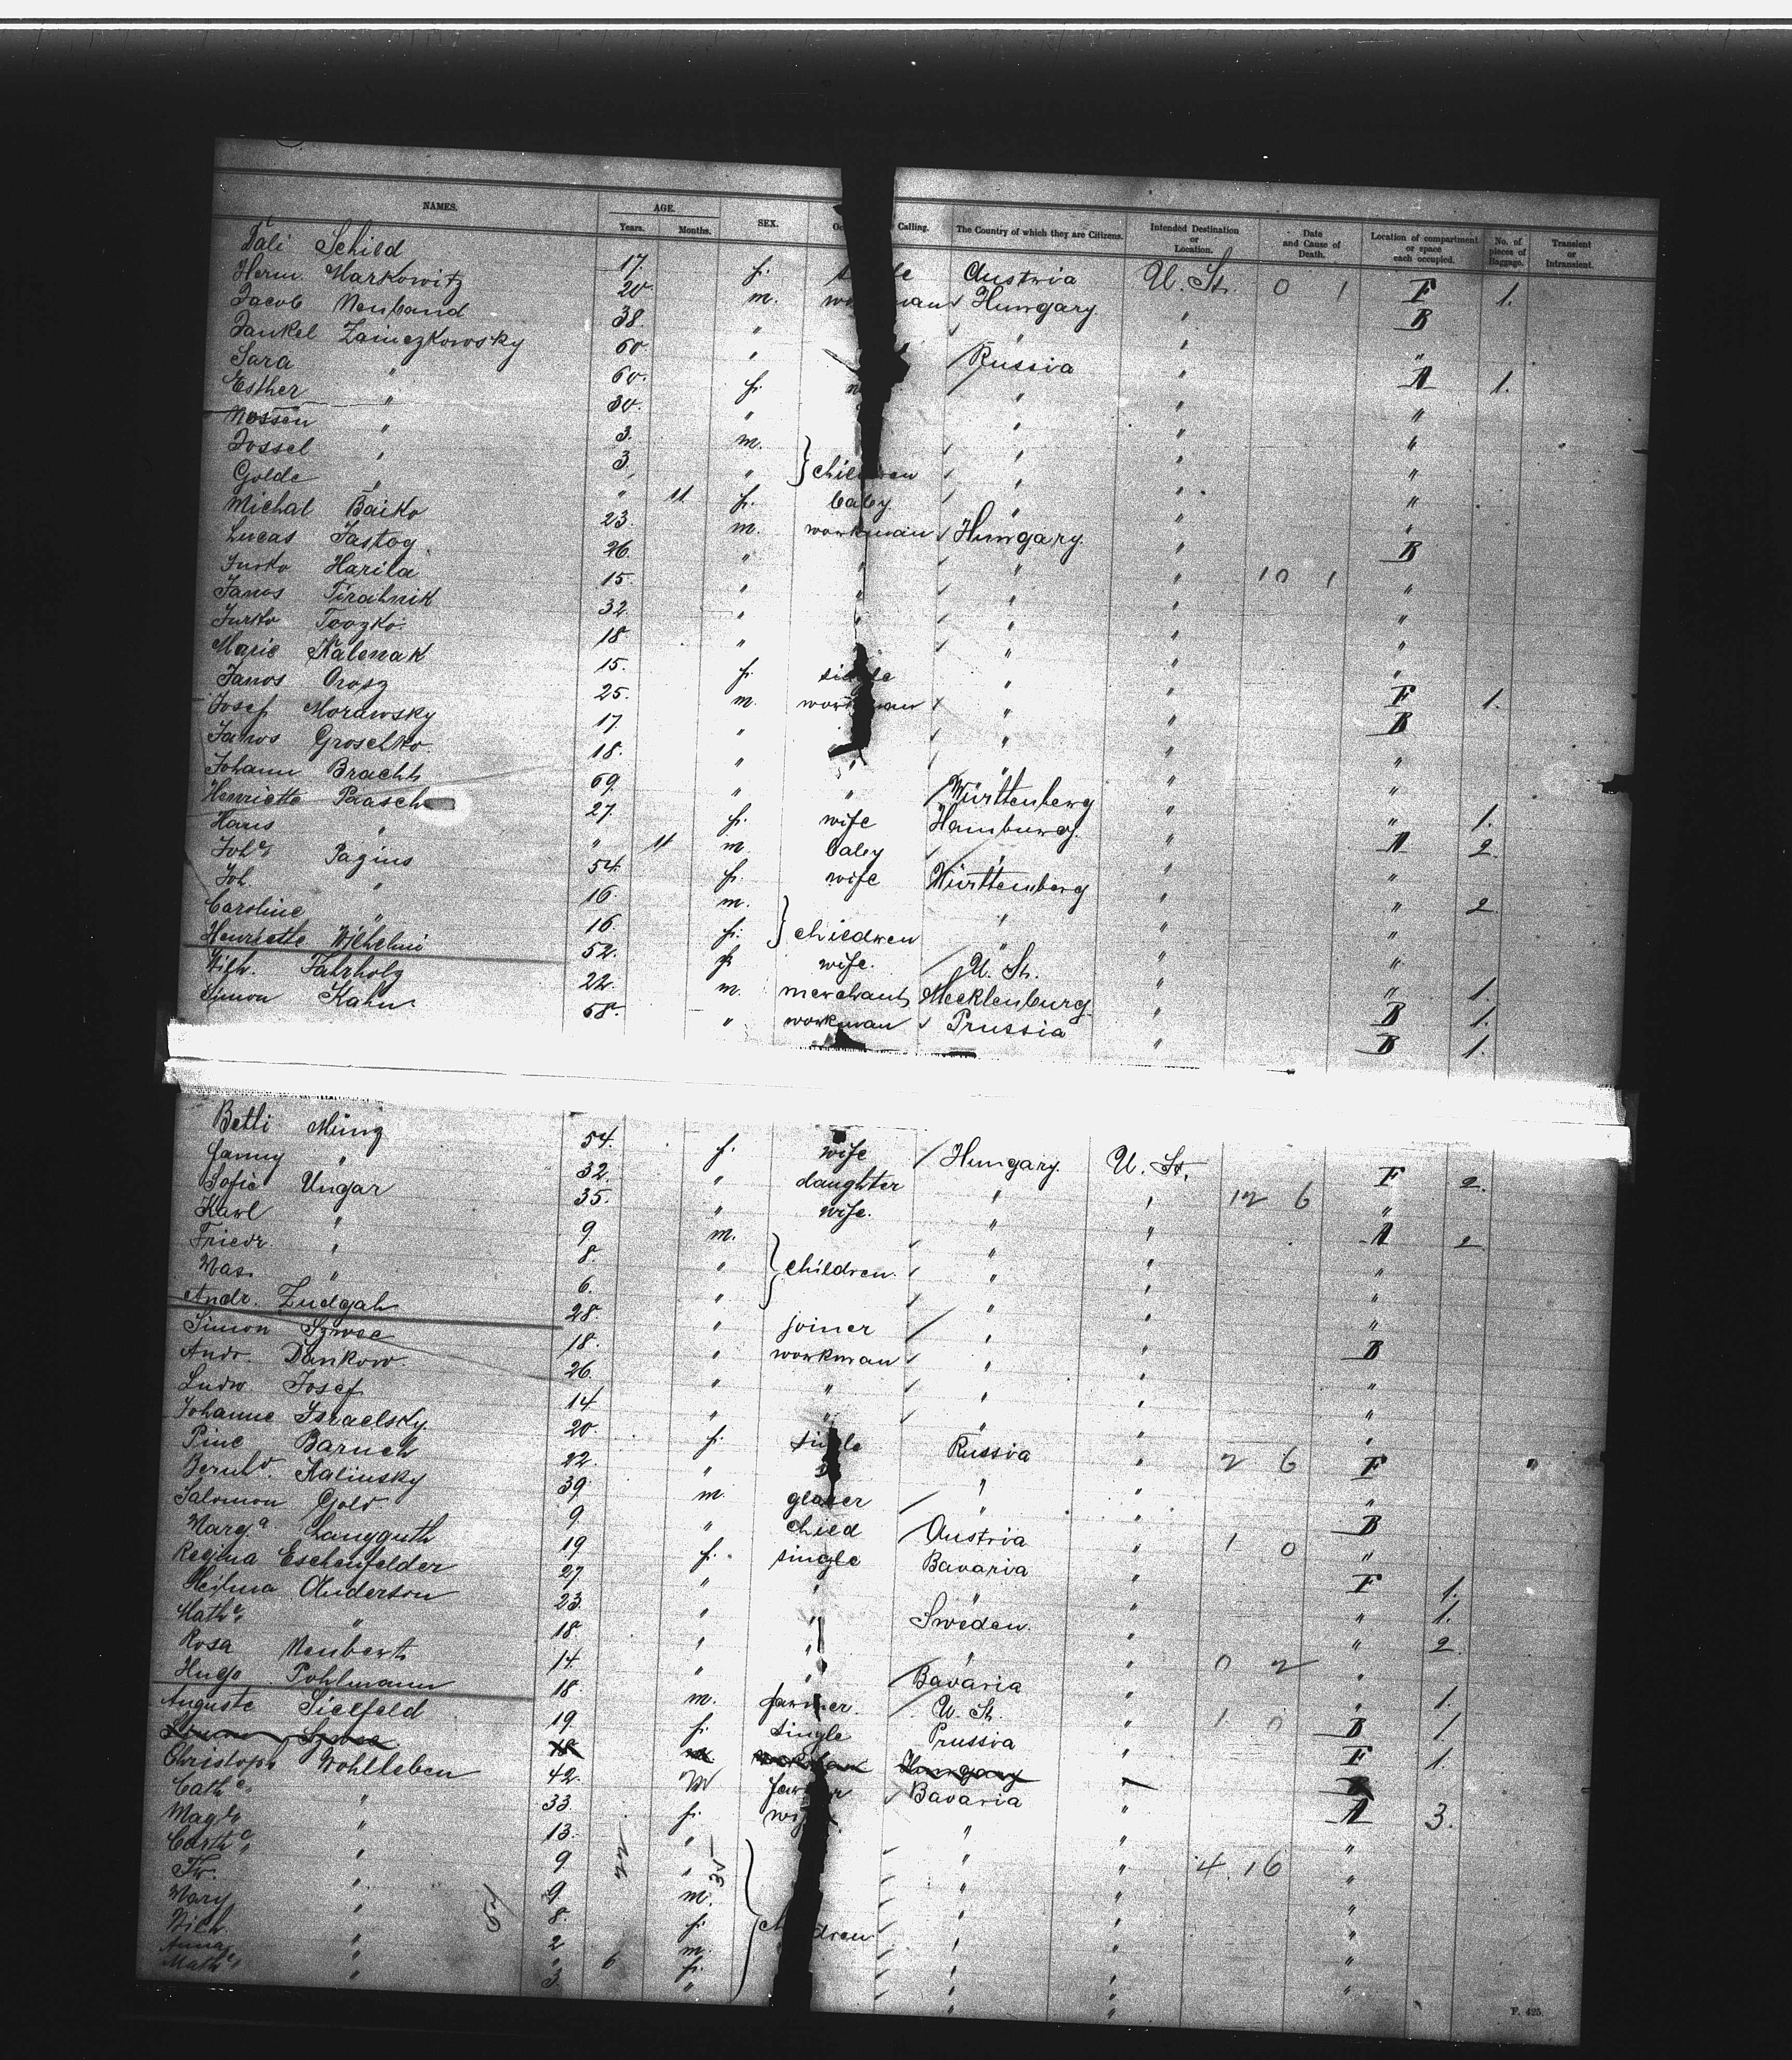 NAMES. AGE. Years. Months. SEX. Calling. The Country of which they are Citizens. Intended Destination or Location. Date and Cause of Death. Location of compartment or space each occupied. No. of pieces of Baggage. Transient or Intransient.
Schild 17 f. Austria U. St. 0 1 F 1.
Herm. Markowitz 20 m. Hungary " B
Jacob Neuband 38 " " " "
Jankel 60 " Russia " A 1.
Sara " 60 f. " " "
Esther " 30 " " " "
Mossen " 3 m. } children " " "
Jossel " 3 " " " "
Golde " " 11 f. baby " " "
Michal Baiko 23 m. workman Hungary " B
Lucas 26 " " " " 10 1 "
Jurko Harila 15 " " " " "
Janos 32 " " " " "
Jurko 18 " " " "
Marie Kalenak 15 f. single " " F 1.
Janos Orosz 25 m. workman " " B
Josef Morawsky 17 " " " "
Janos Groschko 18 " " " " "
Johann Bracht 69 " " Württemberg " " 1.
Henriette Paasch 27 f. wife Hamburg " A 2
Hans " " 11 m. baby " " "
Pagius 54 f. wife Württemberg " " 2
Joh. " 16 m. } children " " "
Caroline " 16 f. " " "
Henriette Wilhelmi 52 f. wife. U. St. " " 1.
Wilh. Fahrholz 22 m. merchant Mecklenburg " B 1.
Simon Kahn 58 " workman Prussia " B 1.
Betti Münz 54 f. wife Hungary U. St. F 2.
Fanny " 32 " daughter " " 12 6 "
Sofie Ungar 35 " wife. " " A 2
Karl " 9 m. } children. " " "
Friedr. " 8 " " " "
" 6 " " " "
Andr. Zudgah 28 " joiner " " B
Simon 18 " workman " " "
Andr. Dankow 26 " " " " "
Ludw. Josef 14 " " " " "
Johanne Israelsky 20 f. single Russia " 2 6 F
Pine Baruch 22 " " " "
Kalinsky 39 m. glazer " " B
Salomon Gold 9 " child Austria " 1 0 "
Marg.a Langguth 19 f. single Bavaria " F 1.
Regina Eschenfelder 27 " " " " " 1.
Anderson 23 " " Sweden " " 2
" 18 " " " " 0 2 "
Rosa Neubert 14 " " Bavaria " " 1.
Hugo Pohlmann 18 m. farmer U. St. " 1 0 B 1
Auguste Sielfeld 19 f. single Prussia " F 1.
Hungary
Christoph Wohlleben 42 m farmer Bavaria " A 3.
Cath. " 33 f. wife " " "
" 13 " } children " " 4 16 "
" 9 " " " "
Fr. " 9 m. " " "
Mary " 8 f. " " "
Wilh. " 2 m. " " "
Anna " " 6 f. " "
" 3 " " "
F. 425.